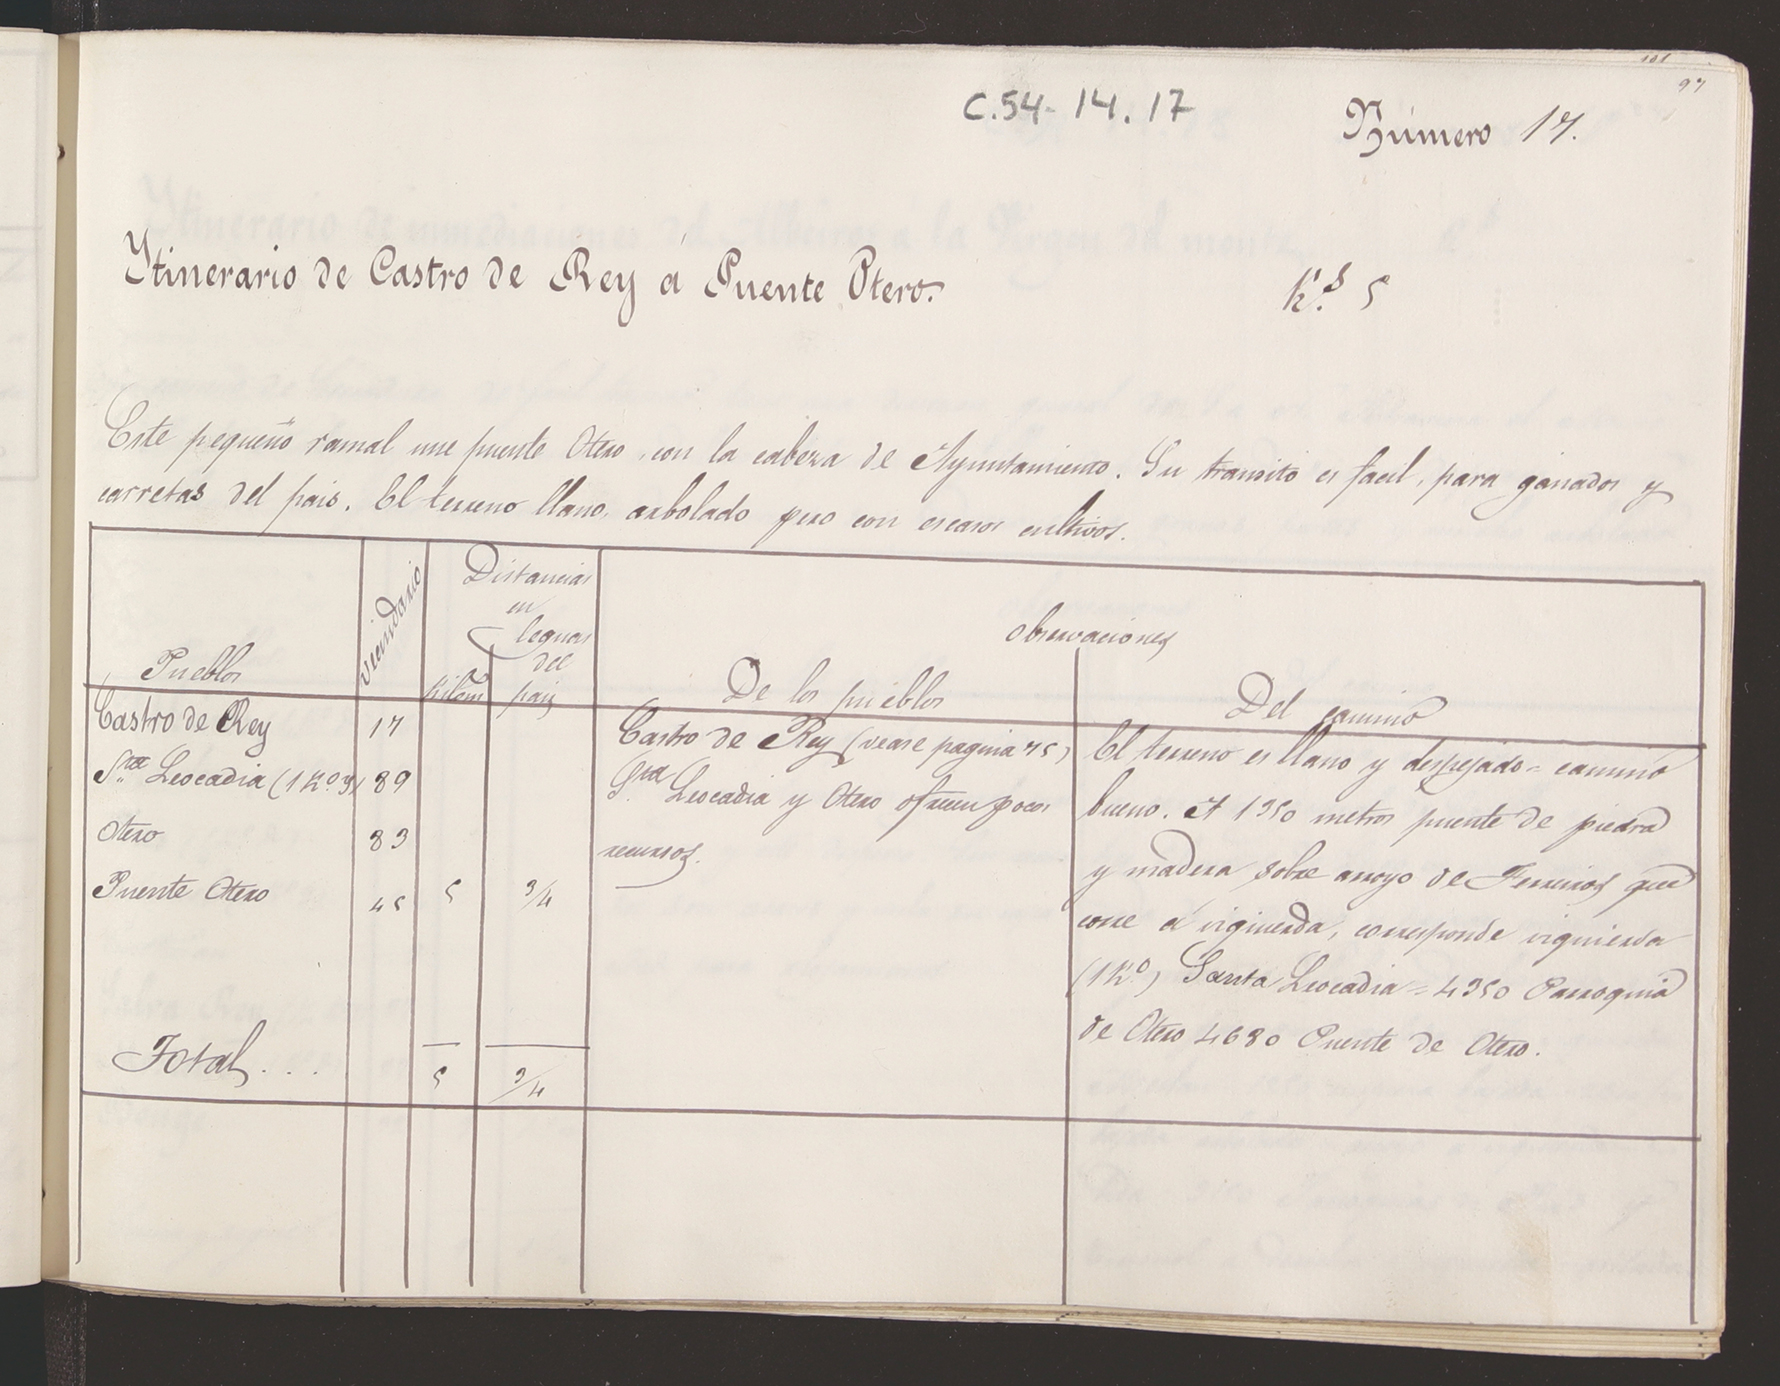 101
97
C.54-14.17
Número 17.
Ytinerario de Castro de Rey á Puente Otero.
K.s 5
Este pequeño ramal une puente Otero, con la cabeza de Ayuntamiento. Su transito es facil, para ganados y
carretas del pais. El terreno llano, arbolado pero con escasos cultivos.
Pueblos
vecindario
Distancias
en
kilom
leguas
del
pais
Observaciones
De los pueblos
Del camino
Castro de Rey 17
Sta Leocadia (1 Ko y) 89
Otero 83
Puente Otero 45 5 3/4
Total... 5 3/4
Castro de Rey (vease pagina 75)
Sta Leocadia y Otero ofrecen pocos
recursos.
El terreno es llano y despejado = camino
bueno. A 1350 metros puente de piedra
y madera sobre arroyo de Ferreiros que
corre á izquierda, corresponde izquierda
(1 Ko) Santa Leocadia = 4350 Parroquia
de Otero 4680 Puente de Otero.